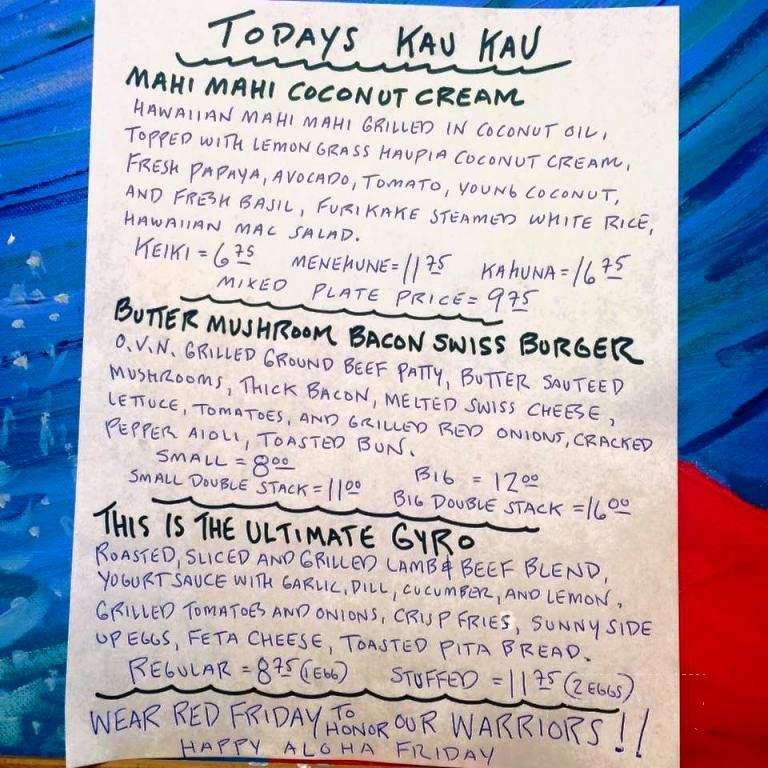 TODAYS KAU KAU
MAHI MAHI COCONUT CREAM
HAWAIIAN MAHI MAHI GRILLED IN COCONUT OIL,
TOPPED WITH LEMON GRASS HAUPIA COCONUT CREAM,
FRESH PAPAYA, AVOCADO, TOMATO, YOUNG COCONUT,
AND FRESH BASIL, FURIKAKE STEAMED WHITE RICE,
HAWAIIAN MAC SALAD.
KEIKI = 6 75 MENEHUNE = 11 75 KAHUNA = 16 75
MIXED PLATE PRICE = 9 75
BUTTER MUSHROOM BACON SWISS BURGER
O.V.N. GRILLED GROUND BEEF PATTY, BUTTER SAUTEED
MUSHROOMS, THICK BACON, MELTED SWISS CHEESE,
LETTUCE, TOMATOES, AND GRILLED RED ONIONS, CRACKED
PEPPER AIOLI, TOASTED BUN.
SMALL = 8 00 BIG = 12 00
SMALL DOUBLE STACK = 11 00 BIG DOUBLE STACK = 16 00
THIS IS THE ULTIMATE GYRO
ROASTED, SLICED AND GRILLED LAMB & BEEF BLEND,
YOGURT SAUCE WITH GARLIC, DILL, CUCUMBER, AND LEMON,
GRILLED TOMATOES AND ONIONS, CRISP FRIES, SUNNY SIDE
UP EGGS, FETA CHEESE, TOASTED PITA BREAD.
REGULAR = 8 75 (1 EGG) STUFFED = 11 75 (2 EGGS)
WEAR RED FRIDAY TO HONOR OUR WARRIORS!!
HAPPY ALOHA FRIDAY